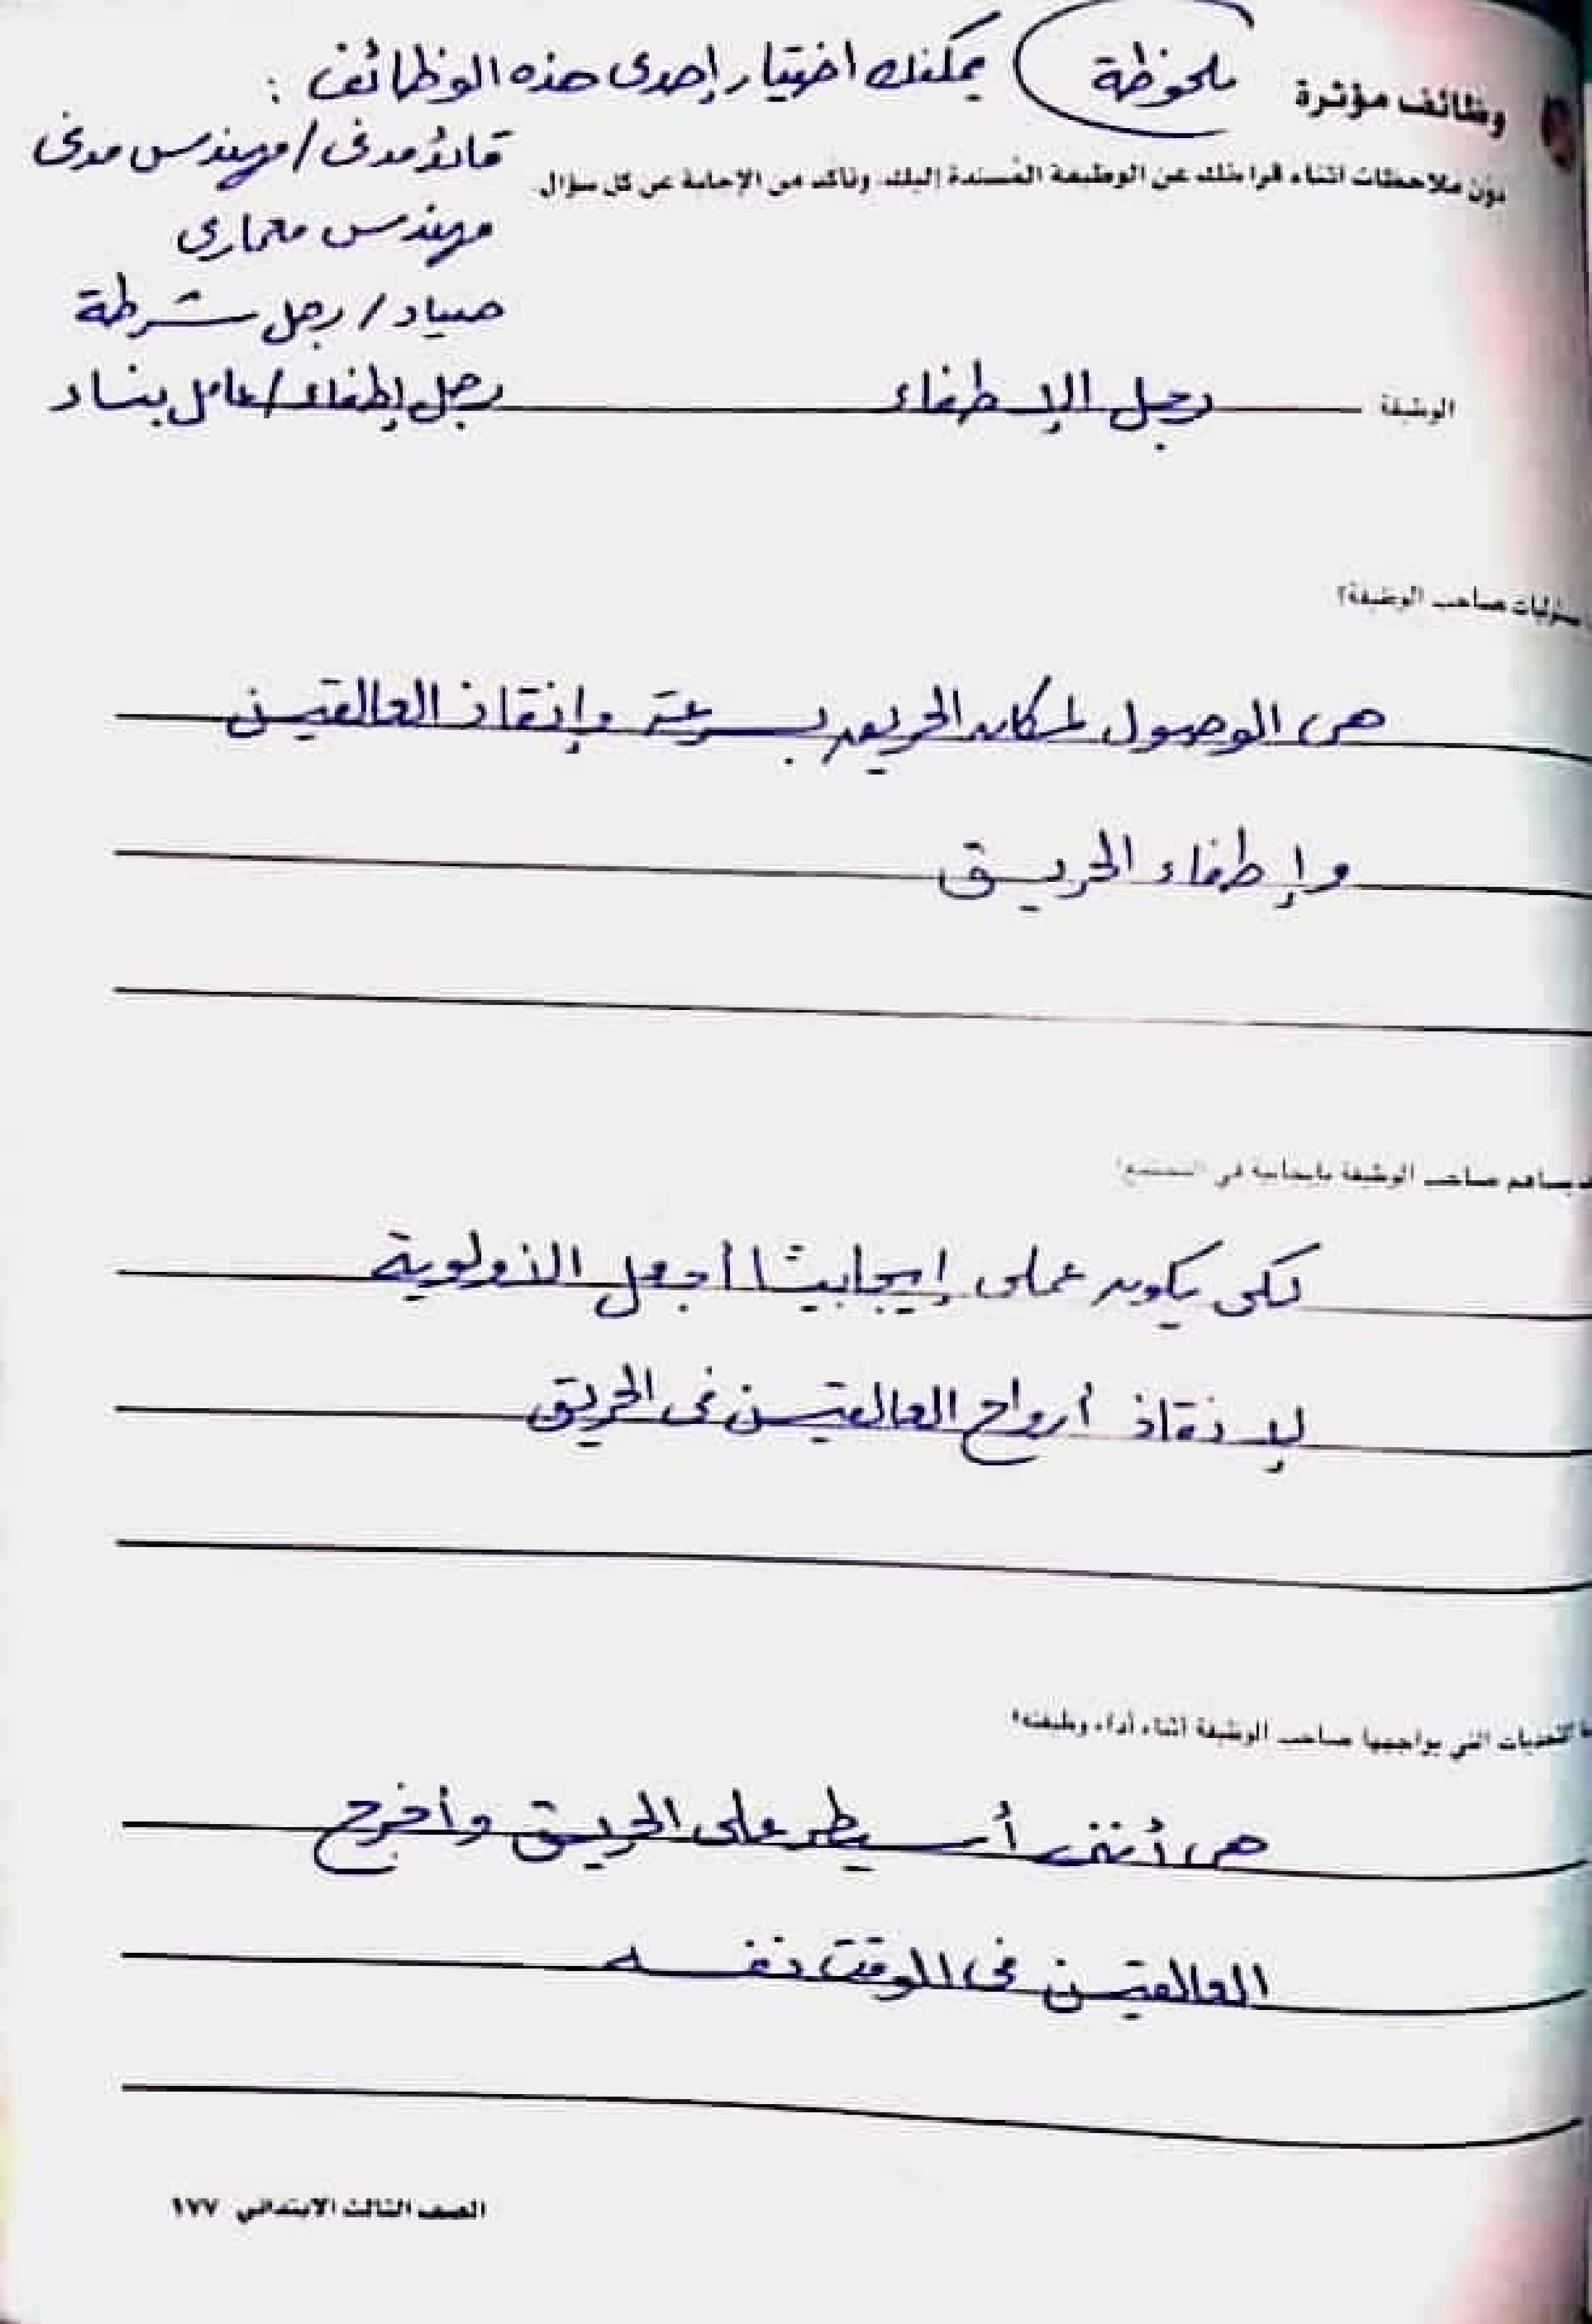 وظائف مؤثرة
ملحوظة يمكنك اختيار إحدى هذه الوظائف :
قائد مدنى / مهندس مدنى
دوّن ملاحظات أثناء قراءتك عن الوظيفة المُسندة إليك، وتأكد من الإجابة عن كل سؤال.
مهندس معمارى
صياد / رجل شرطة
رجل إطفاء / عامل بناء
الوظيفة رجل الإطفاء
صاحب الوظيفة؟
هى الوصول لمكان الحريق بسرعة وإنقاذ العالقين
وإطفاء الحريق
يساهم صاحب الوظيفة بإيجابية في المجتمع؟
لكى يكون عملى إيجابيًا أجعل الأولوية
لإنقاذ أرواح العالقين فى الحريق
التحديات التي يواجهها صاحب الوظيفة أثناء أداء وظيفته؟
هى أننى أسيطر على الحريق وأخرج
العالقين فى الوقت نفسه
الصف الثالث الابتدائي ١٧٧